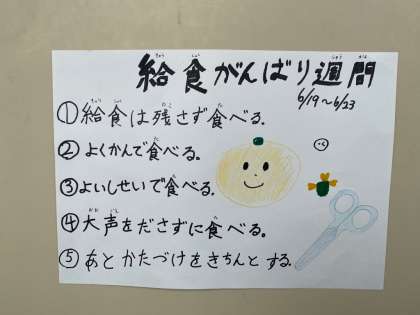 給食がんばり週間
6/19〜6/23
①給食は残さず食べる。
②よくかんで食べる。
③よいしせいで食べる。
④大声をださずに食べる。
⑤あとかたづけをきちんとする。